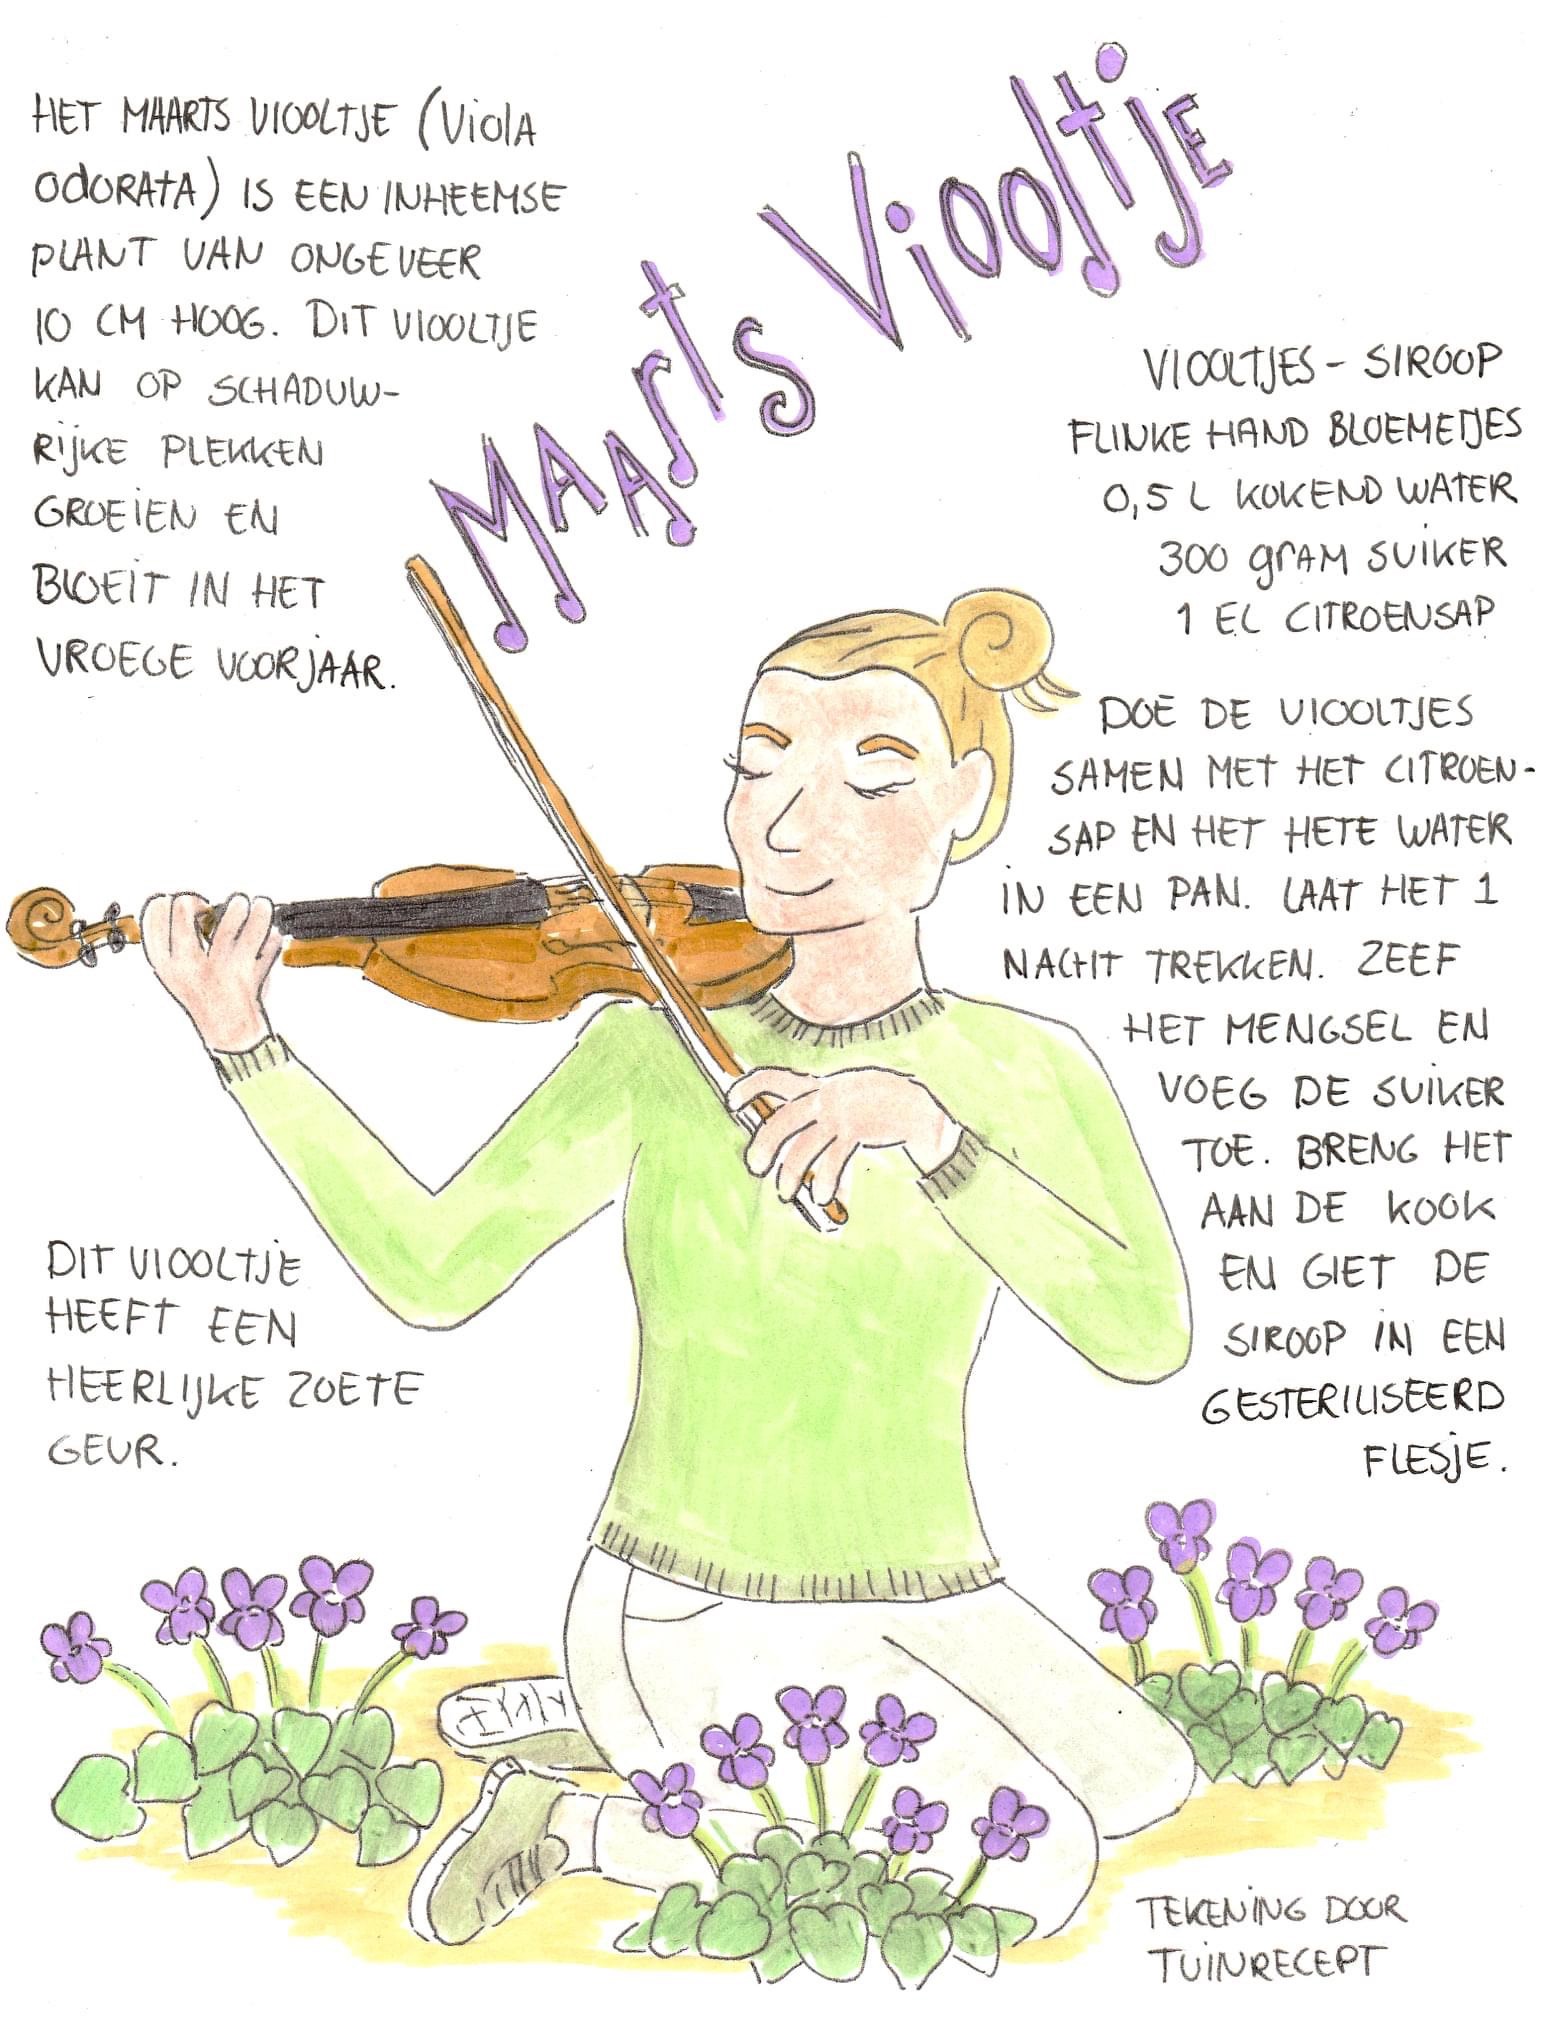 Maarts Viooltje
HET MAARTS VIOOLTJE (Viola
OdORATA) IS EEN INHEEMSE
PLANT VAN ONGEVEER
10 CM HOOG. DIT VIOOLTJE
KAN OP SCHADUW-
RIJKE PLEKKEN
GROEIEN EN
BLOEIT IN HET
VROEGE VOORJAAR.
VIOOLTJES - SIROOP
FLINKE HAND BLOEMETJES
0,5 L KOKEND WATER
300 gram SUIKER
1 EL CITROENSAP
DOE DE VIOOLTJES
SAMEN MET HET CITROEN-
SAP EN HET HETE WATER
IN EEN PAN. LAAT HET 1
NACHT TREKKEN. ZEEF
HET MENGSEL EN
VOEG DE SUIKER
TOE. BRENG HET
AAN DE KOOK
EN GIET DE
SIROOP IN EEN
GESTERILISEERD
FLESJE.
DIT VIOOLTJE
HEEFT EEN
HEERLIJKE ZOETE
GEUR.
TEKENING DOOR
TUINRECEPT